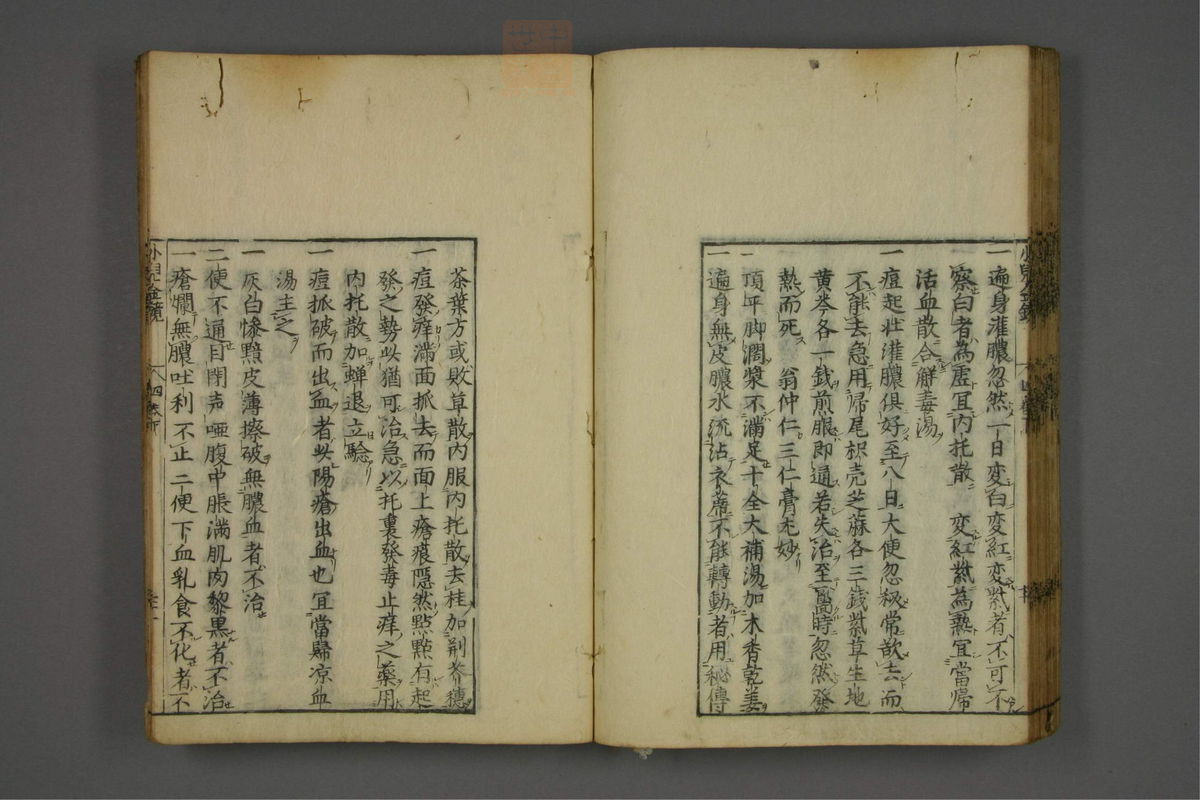 一 遍身灌膿忽然一日変白変紅変紫者不可不
察白者為虚宜内托散 変紅紫為熱宜當帰
活血散合觧毒湯
一 痘起壮灌膿倶好至八日大便忽秘常欲去而
不能去急用帰尾枳壳芝蔴各三銭紫草生地
黄芩各一銭煎服即通若失治至靨時忽然發
熱而死 翁仲仁三仁膏尤妙
一 頂平脚濶漿不満足十全大補湯加木香乾姜
一 遍身無皮膿水流沾衣蓆不能轉動者用秘傳
小兒金鏡
茶葉方或敗草散内服内托散去桂加荊芥穂
一 痘發痒滿面抓去而面上瘡痕隠然點點有起
發之勢此猶可治急以托裏發毒止痒之藥用
内托散加蝉退立験
一 痘抓破而出血者此陽瘡出血也宜當歸凉血
湯主之
一 灰白慘黯皮薄擦破無膿血者不治
二便不通目閉声啞腹中脹滿肌肉黎黒者不治
一 瘡爛無膿吐利不止二便下血乳食不化者不
小兒金鏡